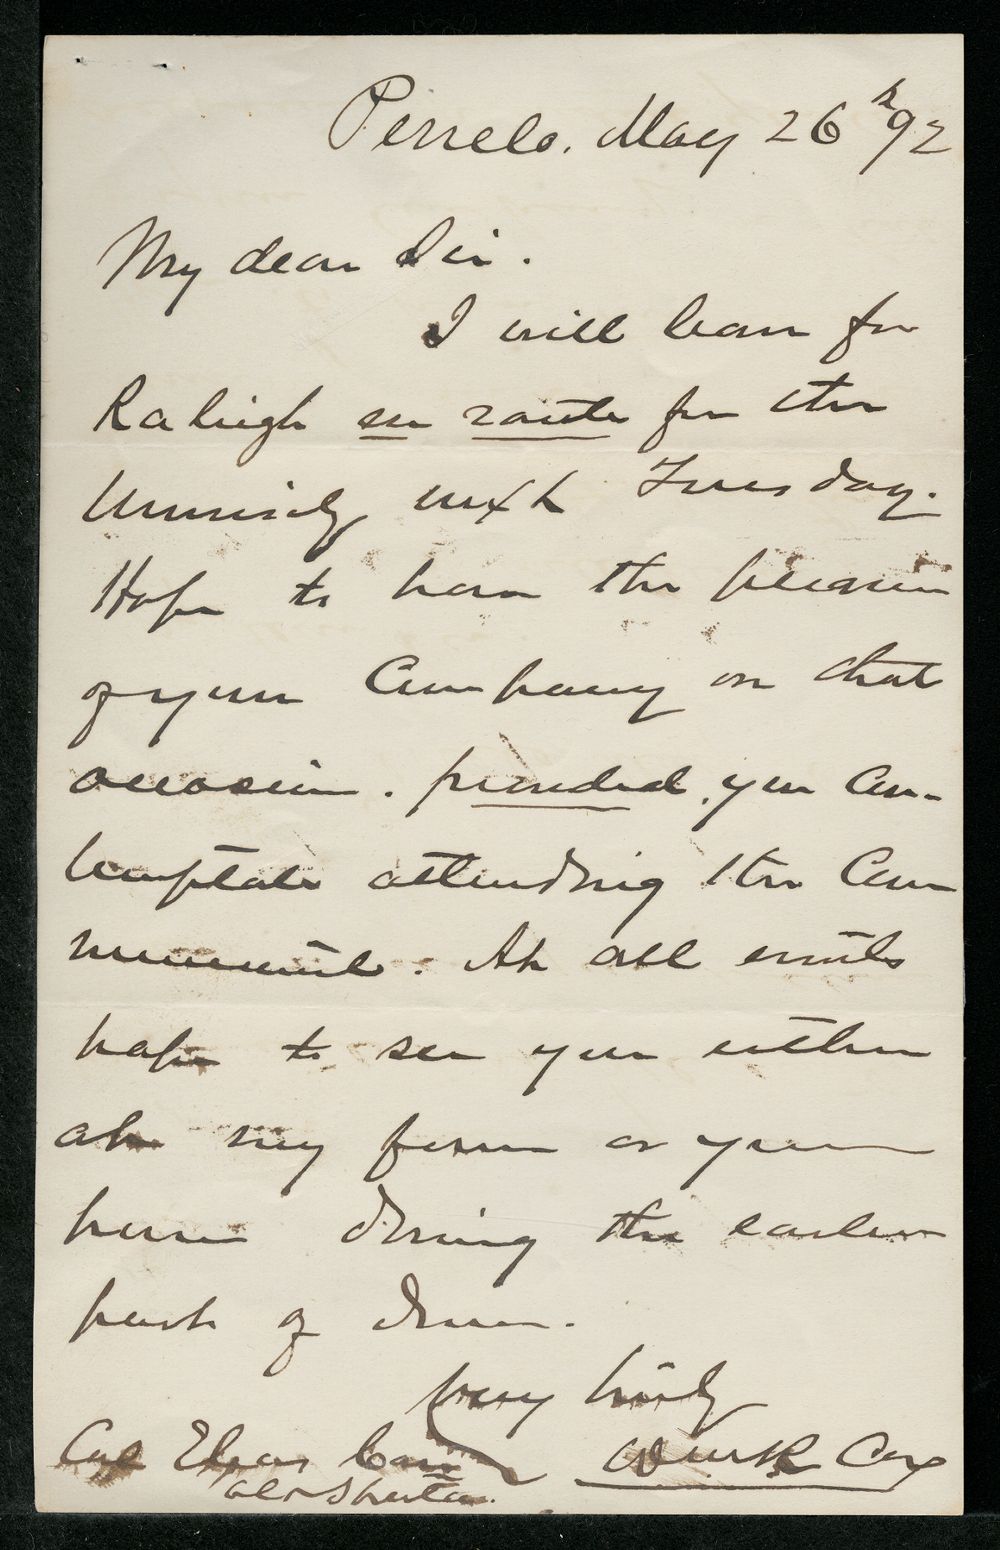 Penelo. May 26th 92
My dear Sir.
I will leave for
Raleigh en route for the
University next Tuesday.
Hope to have the pleasure
of your Company on that
occasion. provided you Con-
template attending the Com
mencement. At all events
hope to see you either
at my farm or your
home during the earlier
part of June.
very truly
Wm R Cox
Col Elias Carr
Old Sparta.